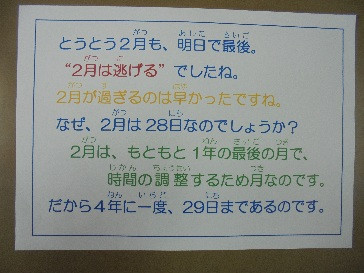 とうとう2月も、明日で最後。
“2月は逃げる”でしたね。
2月が過ぎるのは早かったですね。
なぜ、2月は28日なのでしょうか？
2月は、もともと1年の最後の月で、
時間の調整するため月なのです。
だから4年に一度、29日まであるのです。